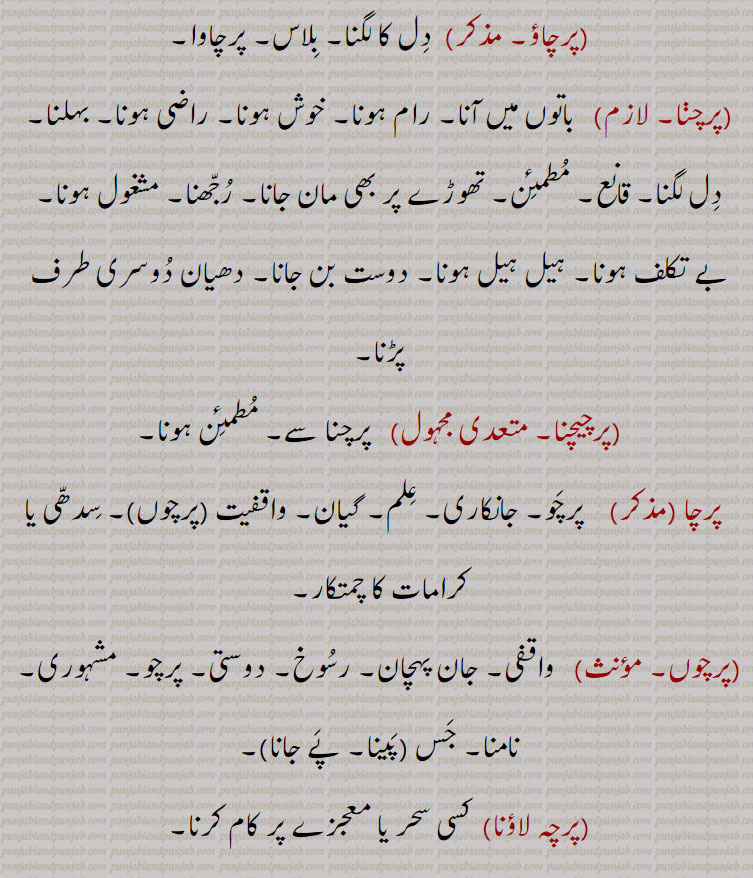 (پرچاؤ۔ مذکر) دِل کا لگنا۔ بِلاس۔ پرچاوا۔
(پرچنا۔ لازم) باتوں میں آنا۔ رام ہونا۔ خوش ہونا۔ راضی ہونا۔ بہلنا۔
دِل لگنا۔ قانع۔ مُطمئِن۔ تھوڑے پر بھی مان جانا۔ رُجّھنا۔ مشغول ہونا۔
بے تکلف ہونا۔ ہیل ہیل ہونا۔ دوست بن جانا۔ دھیان دُوسری طرف
پڑنا۔
(پرچیچنا۔ متعدی مجہول) پرچنا سے۔ مُطمئِن ہونا۔
پرچا (مذکر) پرچَو۔ جانکاری۔ عِلم۔ گیان۔ واقفیت (پرچوں)۔ سِدھّی یا
کرامات کا چمتکار۔
(پرچوں۔ مؤنث) واقفی۔ جان پہچان۔ رسُوخ۔ دوستی۔ پرچو۔ مشہوری۔
نامنا۔ جَس (پَینا۔ پَے جانا)۔
(پرچہ لاؤنا) کسی سحر یا معجزے پر کام کرنا۔